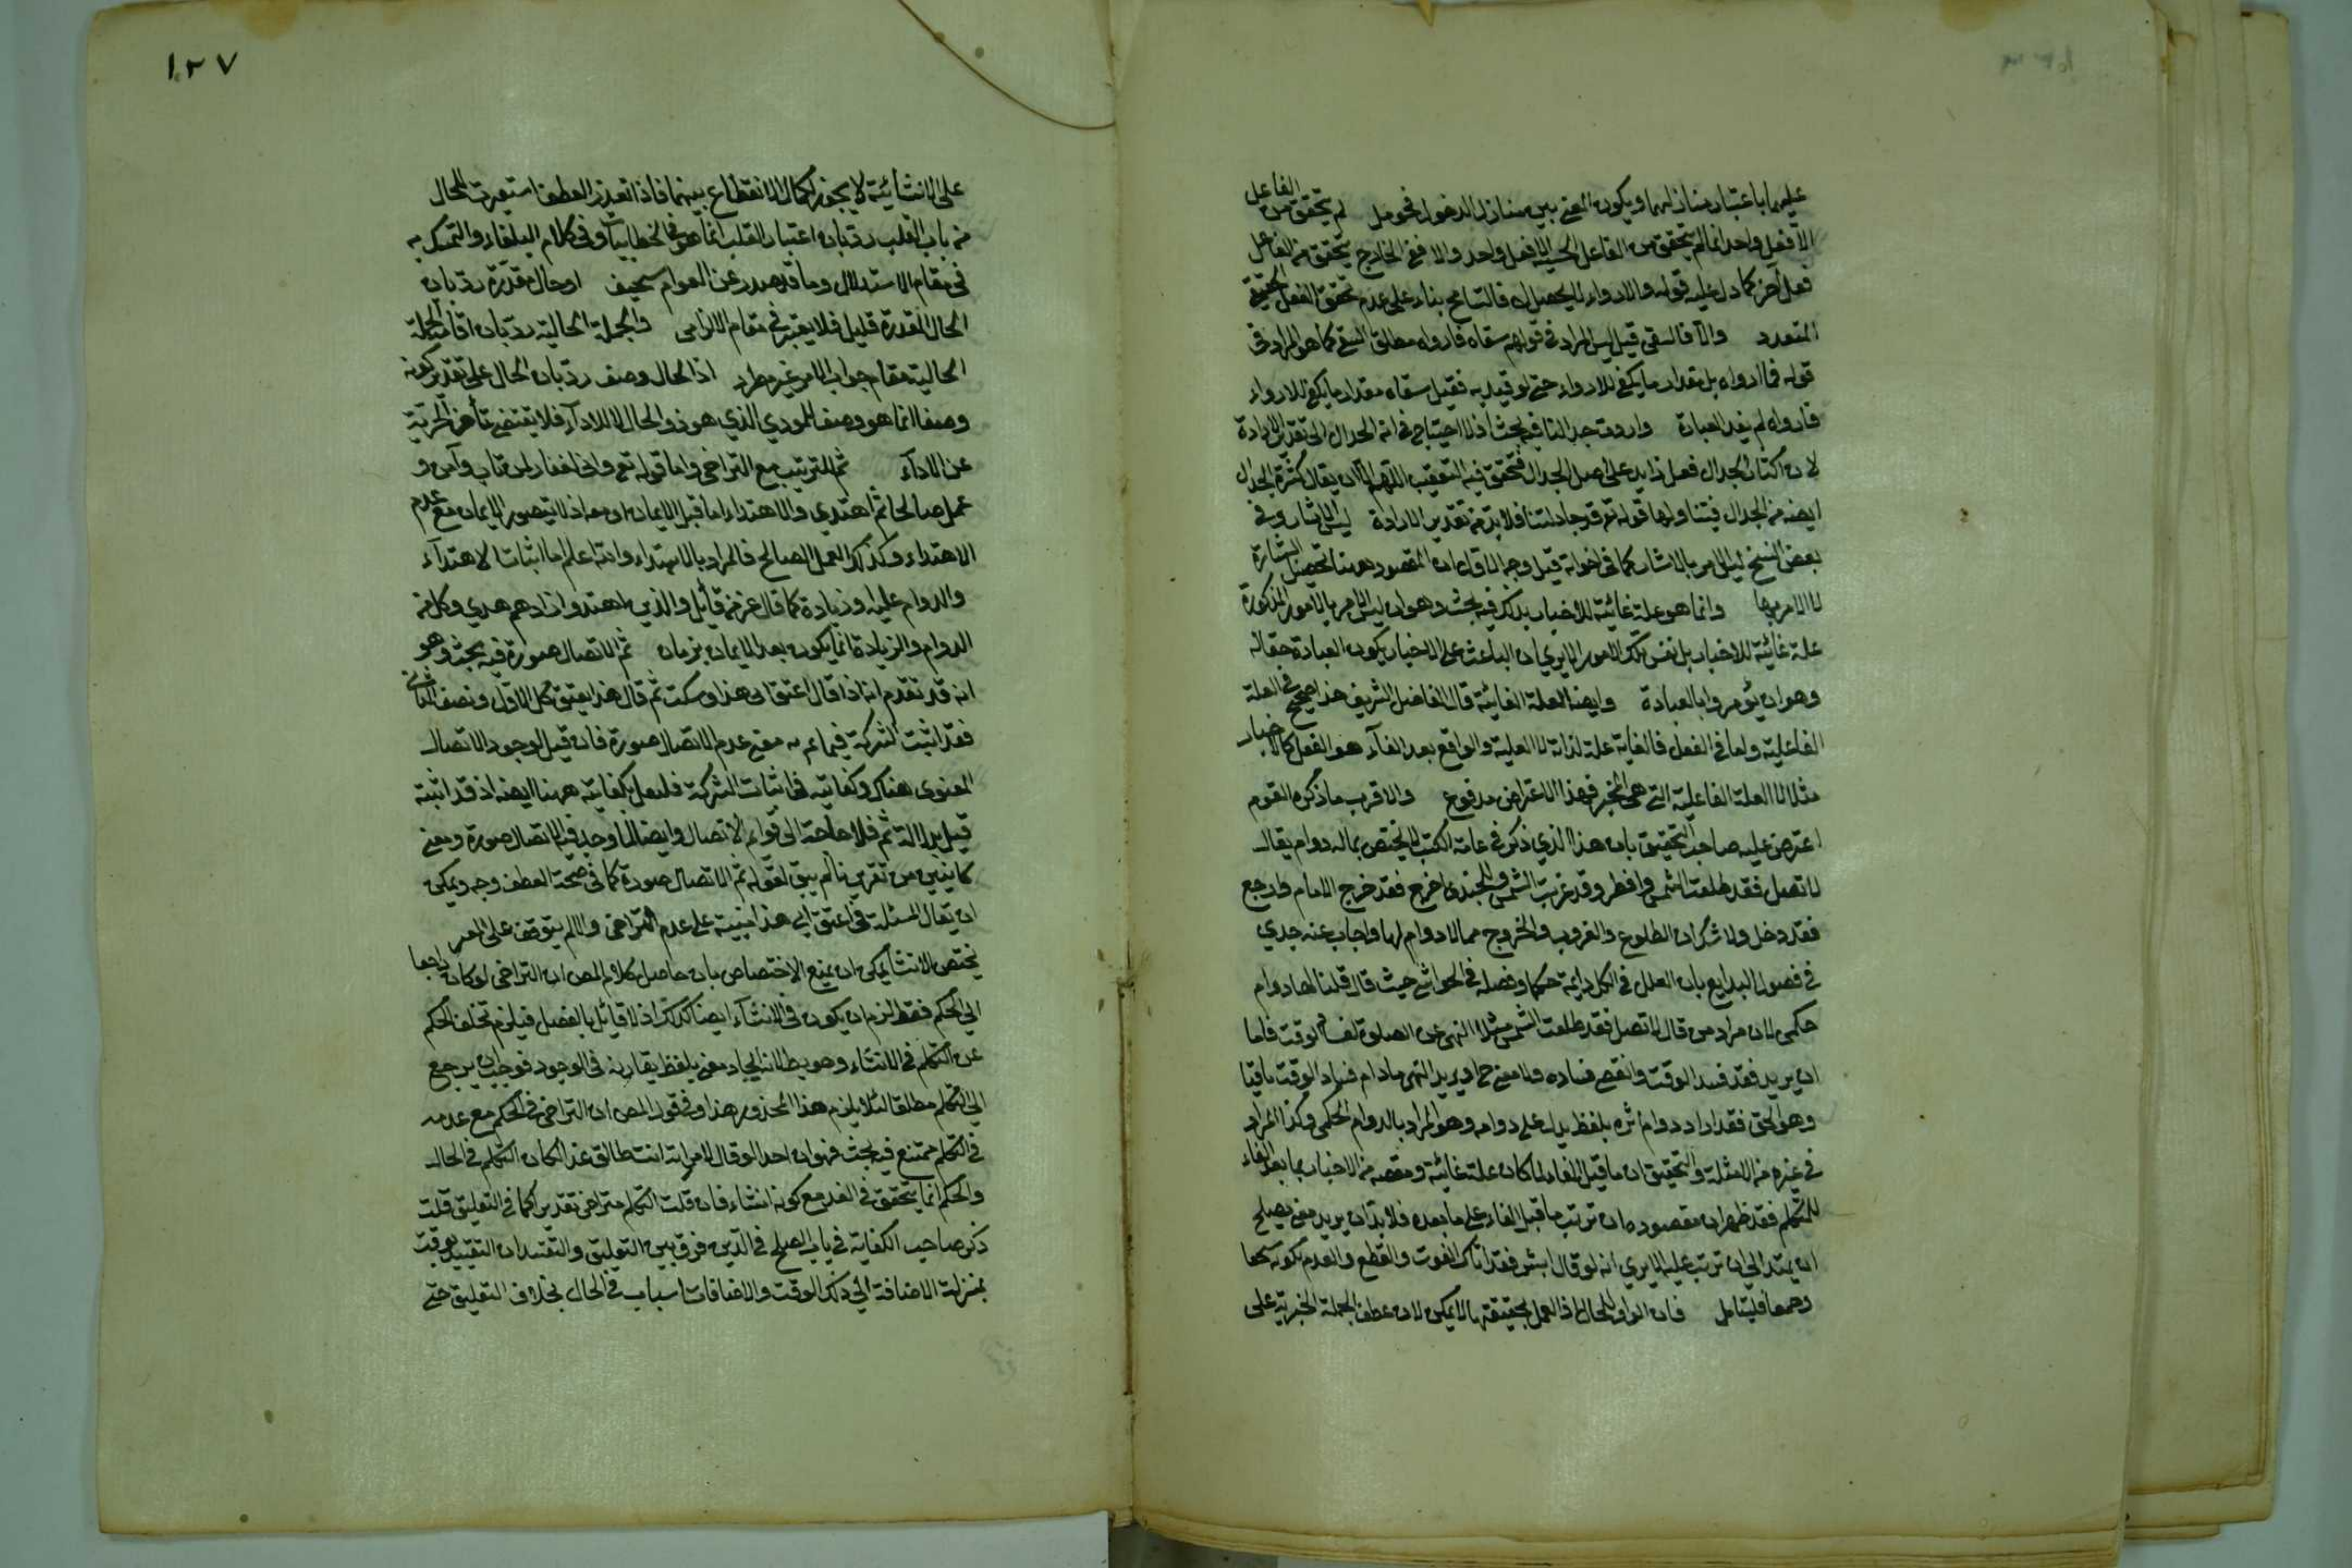 عليهما باعتبار منازلهما ويكون المعنى بين منازل الدخول فحومل لم يتحقق من الفاعل
الا فعل واحد انما لم يتحقق من الفاعل الحسي الا فعل واحد والا ففي الخارج يتحقق من الفاعل
فعل آخر كما دل عليه قوله والارواء لا يحصل الا فالتسامح بناء على عدم تحقق الفعل الحقيقي
المتعدد والا فالسقي قيل ليس المراد في قولهم سقاه فارواه مطلق السقي كما هو المراد في
قوله فما ارواه بل مقدار ما يكفي للارواء حتى لو قيد به فقيل سقاه مقدار ما يكفي للارواء
فارواه لم يفد العبارة واردت جدالنا فيه بحث اذ لا احتياج في اتمه الجدال الى تقدير الارادة
لان اكثار الجدال فعل زايد على اصل الجدال فتحقق فيه التعقيب اللهم الا ان يقال كثرة الجدال
ايضا من الجدال فيتناولها قوله تع قد جادلتنا فلا بد من تقدير الارادة ليس الاشار وفي
بعض النسخ ليس الامر بالاشار كما في اخواته قيل وجه الاول ان المقصود ههنا تحصيل البشارة
لا الامر بها وانما هو علة غائية للاخبار بذلك فيه بحث وهو ان ليس الامر بالامور المذكورة
علة غائية للاخبار بل نفس تلك الامور الا يرى ان الباعث على الاخبار بكون العبادة حقا له
وهو ان يؤمروا بالعبادة وايضا العلة الغائية قال الفاضل الشريف هذا صحيح في العلة
الفاعلية واما في الفعل فالغاية علة لذاته لا العلية والواقع بعد الفاء هو الفعل كالاخبار
مثلا لا العلة الفاعلية التي هي المخبر فهذا الاعتراض مدفوع والاقرب ما ذكره القوم
اعترض عليه صاحب التحقيق بان هذا الذي ذكر في عامة الكتب لا يختص بما له دوام يقال
لا تصل فقد طلعت الشمس وافطر وقد غربت الشمس وللجندي اخرج فقد خرج الامام وارجع
فقد دخل ولا شك ان الطلوع والغروب والخروج مما لا دوام لها واجاب عنه جدي
في فصول البدايع بان العلل في الكل دايمة حكما وفصله في الحواشي حيث قال قلنا لها دوام
حكمي لان مراد من قال لا تصل فقد طلعت الشمس مثلا النهي عن الصلوة لفساد الوقت فاما
ان يريد فقد فسد الوقت وانقضى فساده ولا معنى ح او يريد النهي ما دام فساد الوقت باقيا
وهو الحق فقد اراد دوام اثره بلفظ يدل على دوامه وهو المراد بالدوام الحكمي وكذا المراد
في غيره من الامثلة والتحقيق ان ما قبل الفاء لما كان علة غائية ومقصه من الاخبار بما بعد الفاء
للمتكلم فقد ظهر ان مقصوده ان ترتب ما قبل الفاء على ما بعده فلا بد ان يريد معنى يصلح
ان يمتد الى ان ترتب عليه الا يرى انه لو قال ابشر فقد اتاك الغوث والقطع والعدم بكونه
وهما فليتامل فان الواو للحال اذ العمل بحقيقتها لا يمكن لان عطف الجملة الخبرية على
١٢٧
على الانشائية لا يجوز لكمال الانقطاع بينهما فاذا تعذر العطف استعيرت للحال
من باب القلب رد بان اعتبار القلب انما هو في الخطابيات وفي كلام البلغاء والتمسك به
في مقام الاستدلال وما قد صدر عن العوام سخيف او حال مقدرة رد بان
الحال المقدرة قليل فلا يعتبر في مقام الالزامي والجملة الحالية رد بان اقامة الجملة
الحالية مقام جواب الامر غير مطرد اذ الحال وصف رد بان الحال على تقدير كونه
وصفا انما هو وصف للمودي الذي هو ذو الحال لا للادآء فلا يقتضي تأخر الحرية
عن الادآء ثم للترتيب مع التراخي واما قوله تع واني لغفار لمن تاب وآمن و
عمل صالحا ثم اهتدي والاهتداء اما قبل الايمان او معه اذ لا يتصور الايمان مع عدم
الاهتداء وكذلك العمل الصالح فالمراد بالاهتداء والله اعلم اما اثبات الاهتدآء
والدوام عليه او زيادة كما قال عز من قائل والذين اهتدوا زادهم هدي وكل من
الدوام والزيادة انما يكون بعد الايمان بزمان ثم الاتصال صورة فيه بحث وهو
انه قد تقدم انه اذا قال اعتق ابى هذا وسكت ثم قال هذا يعتق كل الاول ونصف الثاني
فقد اثبت الشركة فيما تم به مع عدم الاتصال صورة فان قيل الوجود الاتصال
المعنوى هناك وكفايته في اثبات الشركة فلنعل بكفايته ههنا ايضا اذ قد اثبته
قبيل بدلالة ثم فلا حاجة الى قوله ثم الاتصال وايضا لما وجد فيه الاتصال صورة ومعنى
كما يتبين من تقريرنا لم يبق لقوله ثم الاتصال صورة كما في صحة العطف وجه ويمكن
ان يقال المسئلة في اعتق ابي هذا مبنية على عدم التراخي والا لم يتوقف على المغير
يختص الانشا يمكن ان يمنع الاختصاص بان حاصل كلام المص ان التراخي لو كان راجعا
الى الحكم فقط لزم ان يكون في الانشآء ايضا كذلك اذ لا قائل بالفصل فيلزم تخلف الحكم
عن التكلم في الانشاء وهو بط لانه ايجاد معنى بلفظ يقارنه في الوجود فوجب ان يرجع
الى التكلم مطلقا لئلا يلزم هذا المحذور هذا وفي قول المص ان التراخي في الحكم مع عدمه
في التكلم ممتنع فيه بحث فهو ان احدا لو قال لامراته انت طالق غدا لكان التكلم في الحال
والحكم انما يتحقق في الغد مع كونه انشاء فان قلت التكلم متراخ تقديرا كما في التعليق قلت
ذكر صاحب الكفاية في باب الصلح في الدين فرق بين التعليق والتقييد ان التقييد بوقت
بمنزلة الاضافة الي ذلك الوقت والاضافات اسباب في الحال بخلاف التعليق حتى